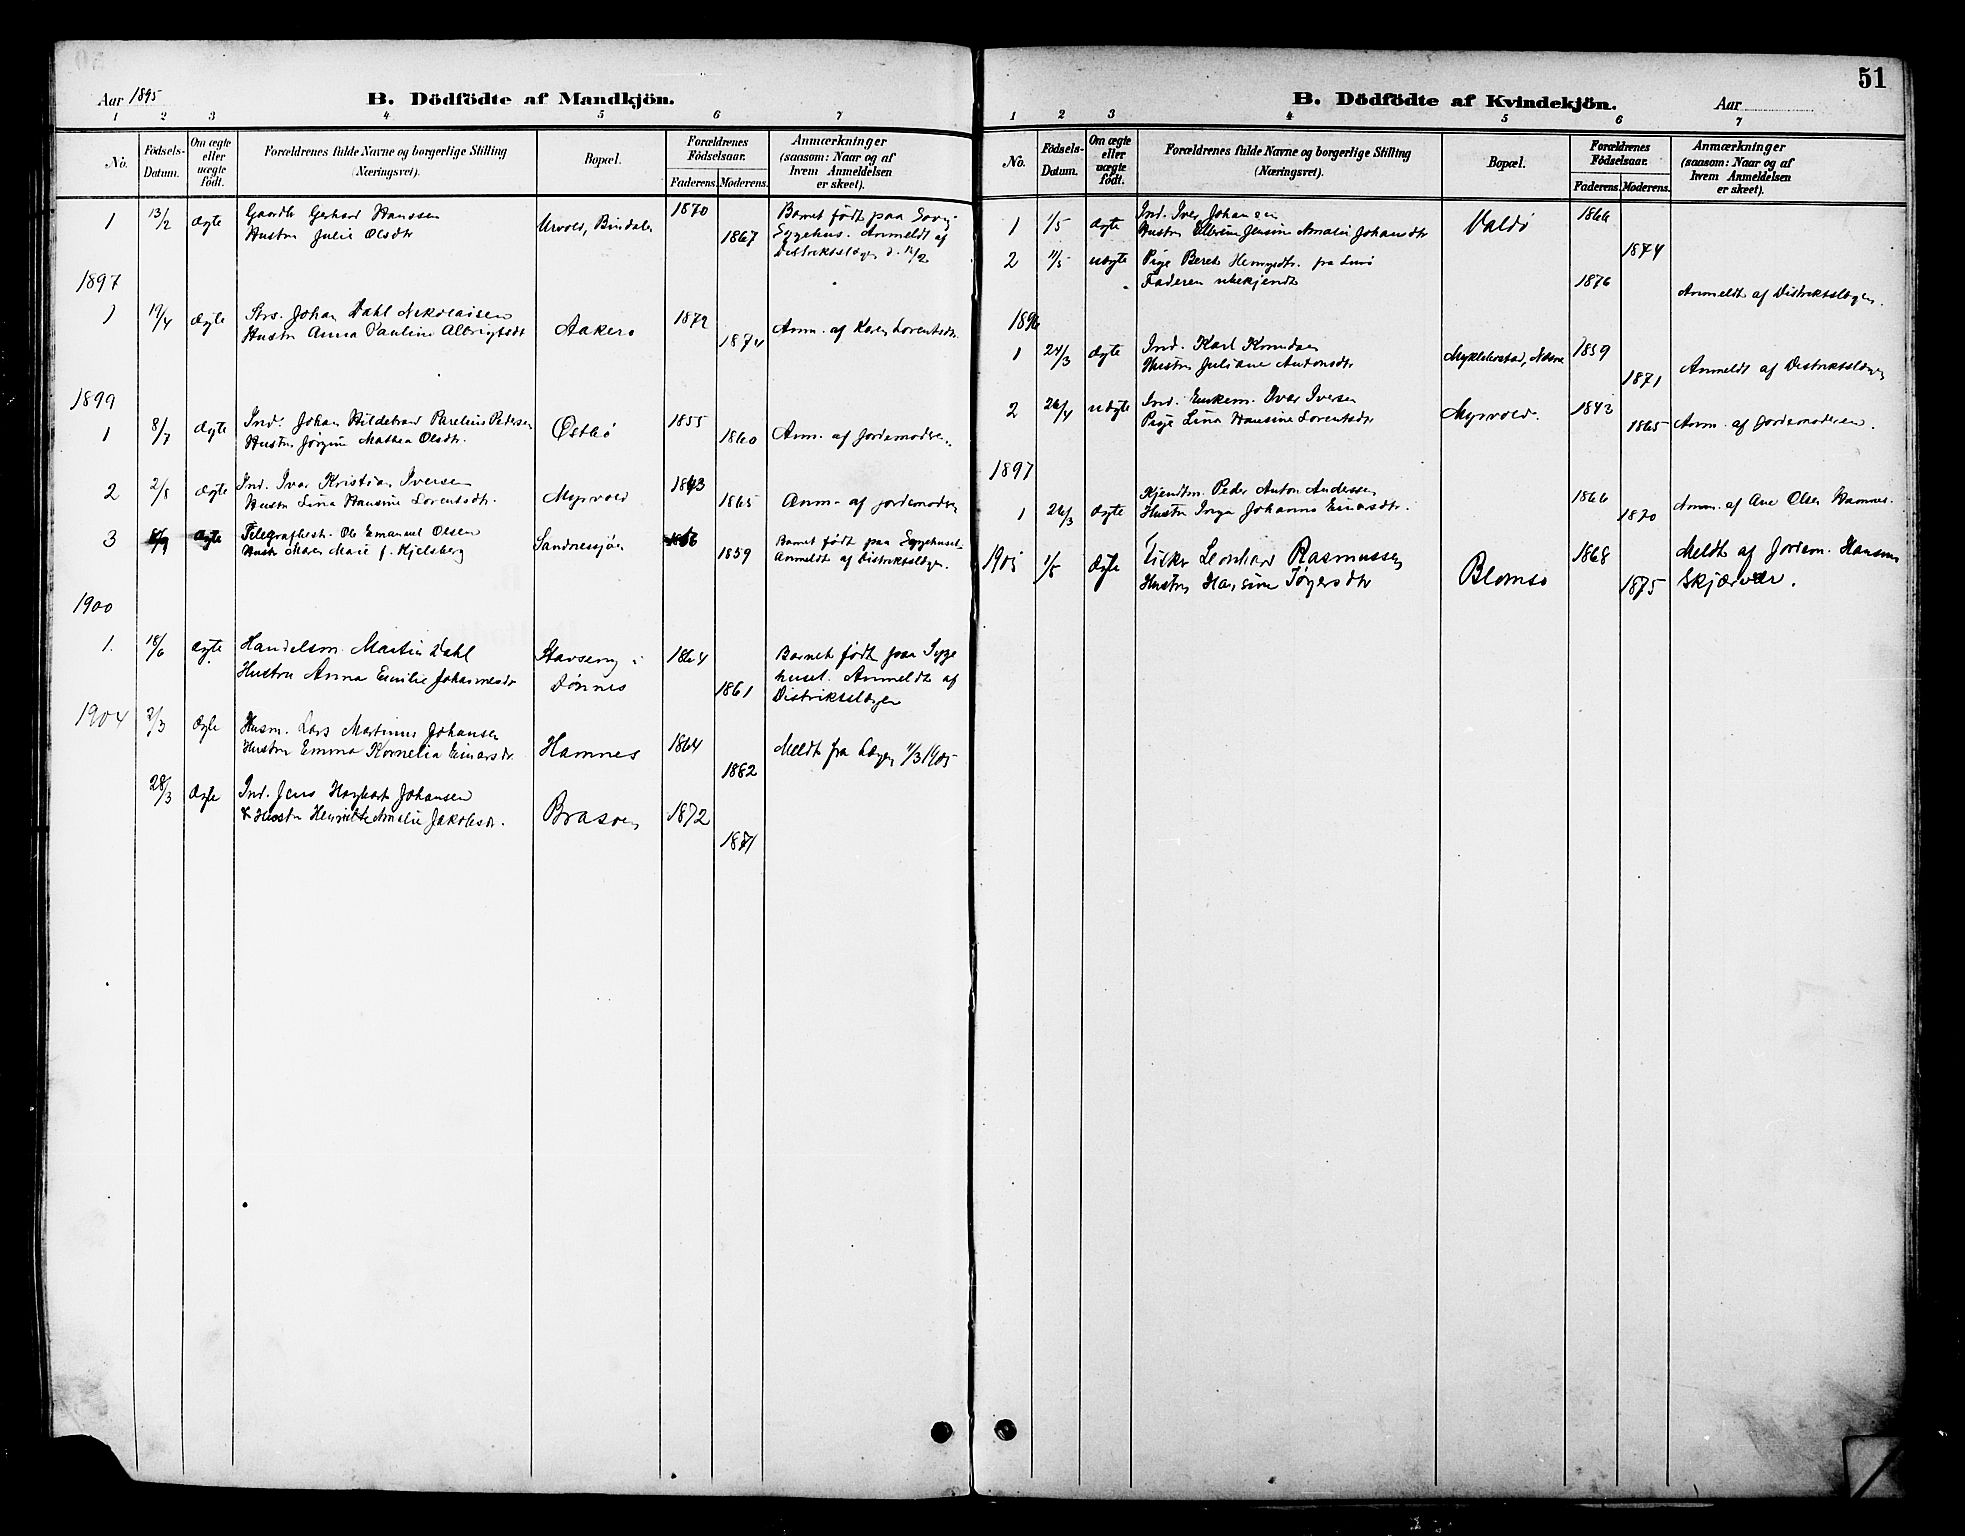 Aar 1895
B. Dödfödte af Mandkjön.
1 2 3 4 5 6 7
No.
Födsels-Datum.
Om ægte eller uægte födt.
Forældrenes fulde Navne og borgerlige Stilling (Næringsvei).
Bopæl.
Forældrenes Födselsaar.
Faderens. Moderens.
Anmærkninger (saasom: Naar og af hvem Anmeldelsen er skeet).
1 13/2 ægte Gaardb. Gerhard Hanssen Urvold, Bindalen 1870 Barnet født paa
Hustru Julie Olsdtr 1867 Sygehus. Anmeldt af
Distriktslægen d.
1897
1 19/4 ægte Strs. Johan Dahl Nikolaisen Aakerø 1872
Hustru Anna Pauline Albrigtsdtr 1874 Anm. af Karen Lorentsdtr.
1899
1 8/7 ægte Ind. Johan Hildebrad Parelius Pedersen Østbø 1855
Hustru Jørgine Mathea Olsdtr. 1860 Anm. af Jordemoderen.
2 2/8 ægte Ind. Ivar Kristian Iversen Myrvold 1843
Hustru Lina Hansine Lorentsdtr. 1865 Anm. af Jordemoderen
3 ægte Telegrafbest. Ole Emanuel Olsen Sandnessjøen Barnet født paa Sygehuset
Hustr Maren Marie f. Kjelsberg 1859 Anmeldt af Distriktslægen.
1900
1. 18/6 ægte Handelsm. Martin Dahl Stavseng i 1864 Barnet født paa Syge
Hustru Anna Emilie Johannesdtr Dønnes 1861 huset. Anmeldt af
Distriktslægen
1904 2/3 ægte Husm. Lars Martinus Johansen Hamnes 1864
Hustru Emma Kornelia Einarsdtr. 1862 Meldt fra Lægen 1/3 1905
28/3 ægte Ind. Jens Hagbart Johansen Brasøen 1872
& Hustru Henriette Amalie Jakobsdtr. 1871
51
B. Dödfödte af Kvindekjön.
Aar
1 2 3 4 5 6 7
No.
Födsels-Datum.
Om ægte eller uægte födt.
Forældrenes fulde Navne og borgerlige Stilling (Næringsvei).
Bopæl.
Forældrenes Födselsaar.
Faderens. Moderens.
Anmærkninger (saasom: Naar og af hvem Anmeldelsen er skeet).
1 1/5 ægte Ind. Iver Johansen Valdø 1866
Hustru Jensine Amalie Johansdtr 1874
2 11/5 uægte Pige Beret
Faderen ubekjendt 1876 Anmeldt af Distriktslægen.
1896
1 24/3 ægte Ind. Karl Myklebostad, Nesna 1859
Hustru Juliane Antonsdtr 1871 Anmeldt af Distriktslægen
2 26/4 uægte Ind. Enkem. Ivar Iversen Myrvold. 1843
Pige Lina Hansine Lorentsdtr 1865 Anm. af Jordemoderen.
1897
1 26/3 ægte Kjendtm. Peder Anton Andersen 1866
Hustru Inga Johanna Einarsdtr. 1870 Anm. af Ane Olsen Hamnes.
1905 1/5 ægte Fisker Leonhard Rasmussen Blomsø 1868 Meldt af Jordem. Hansen
Hustru Hansine 1875 Skjærvær.